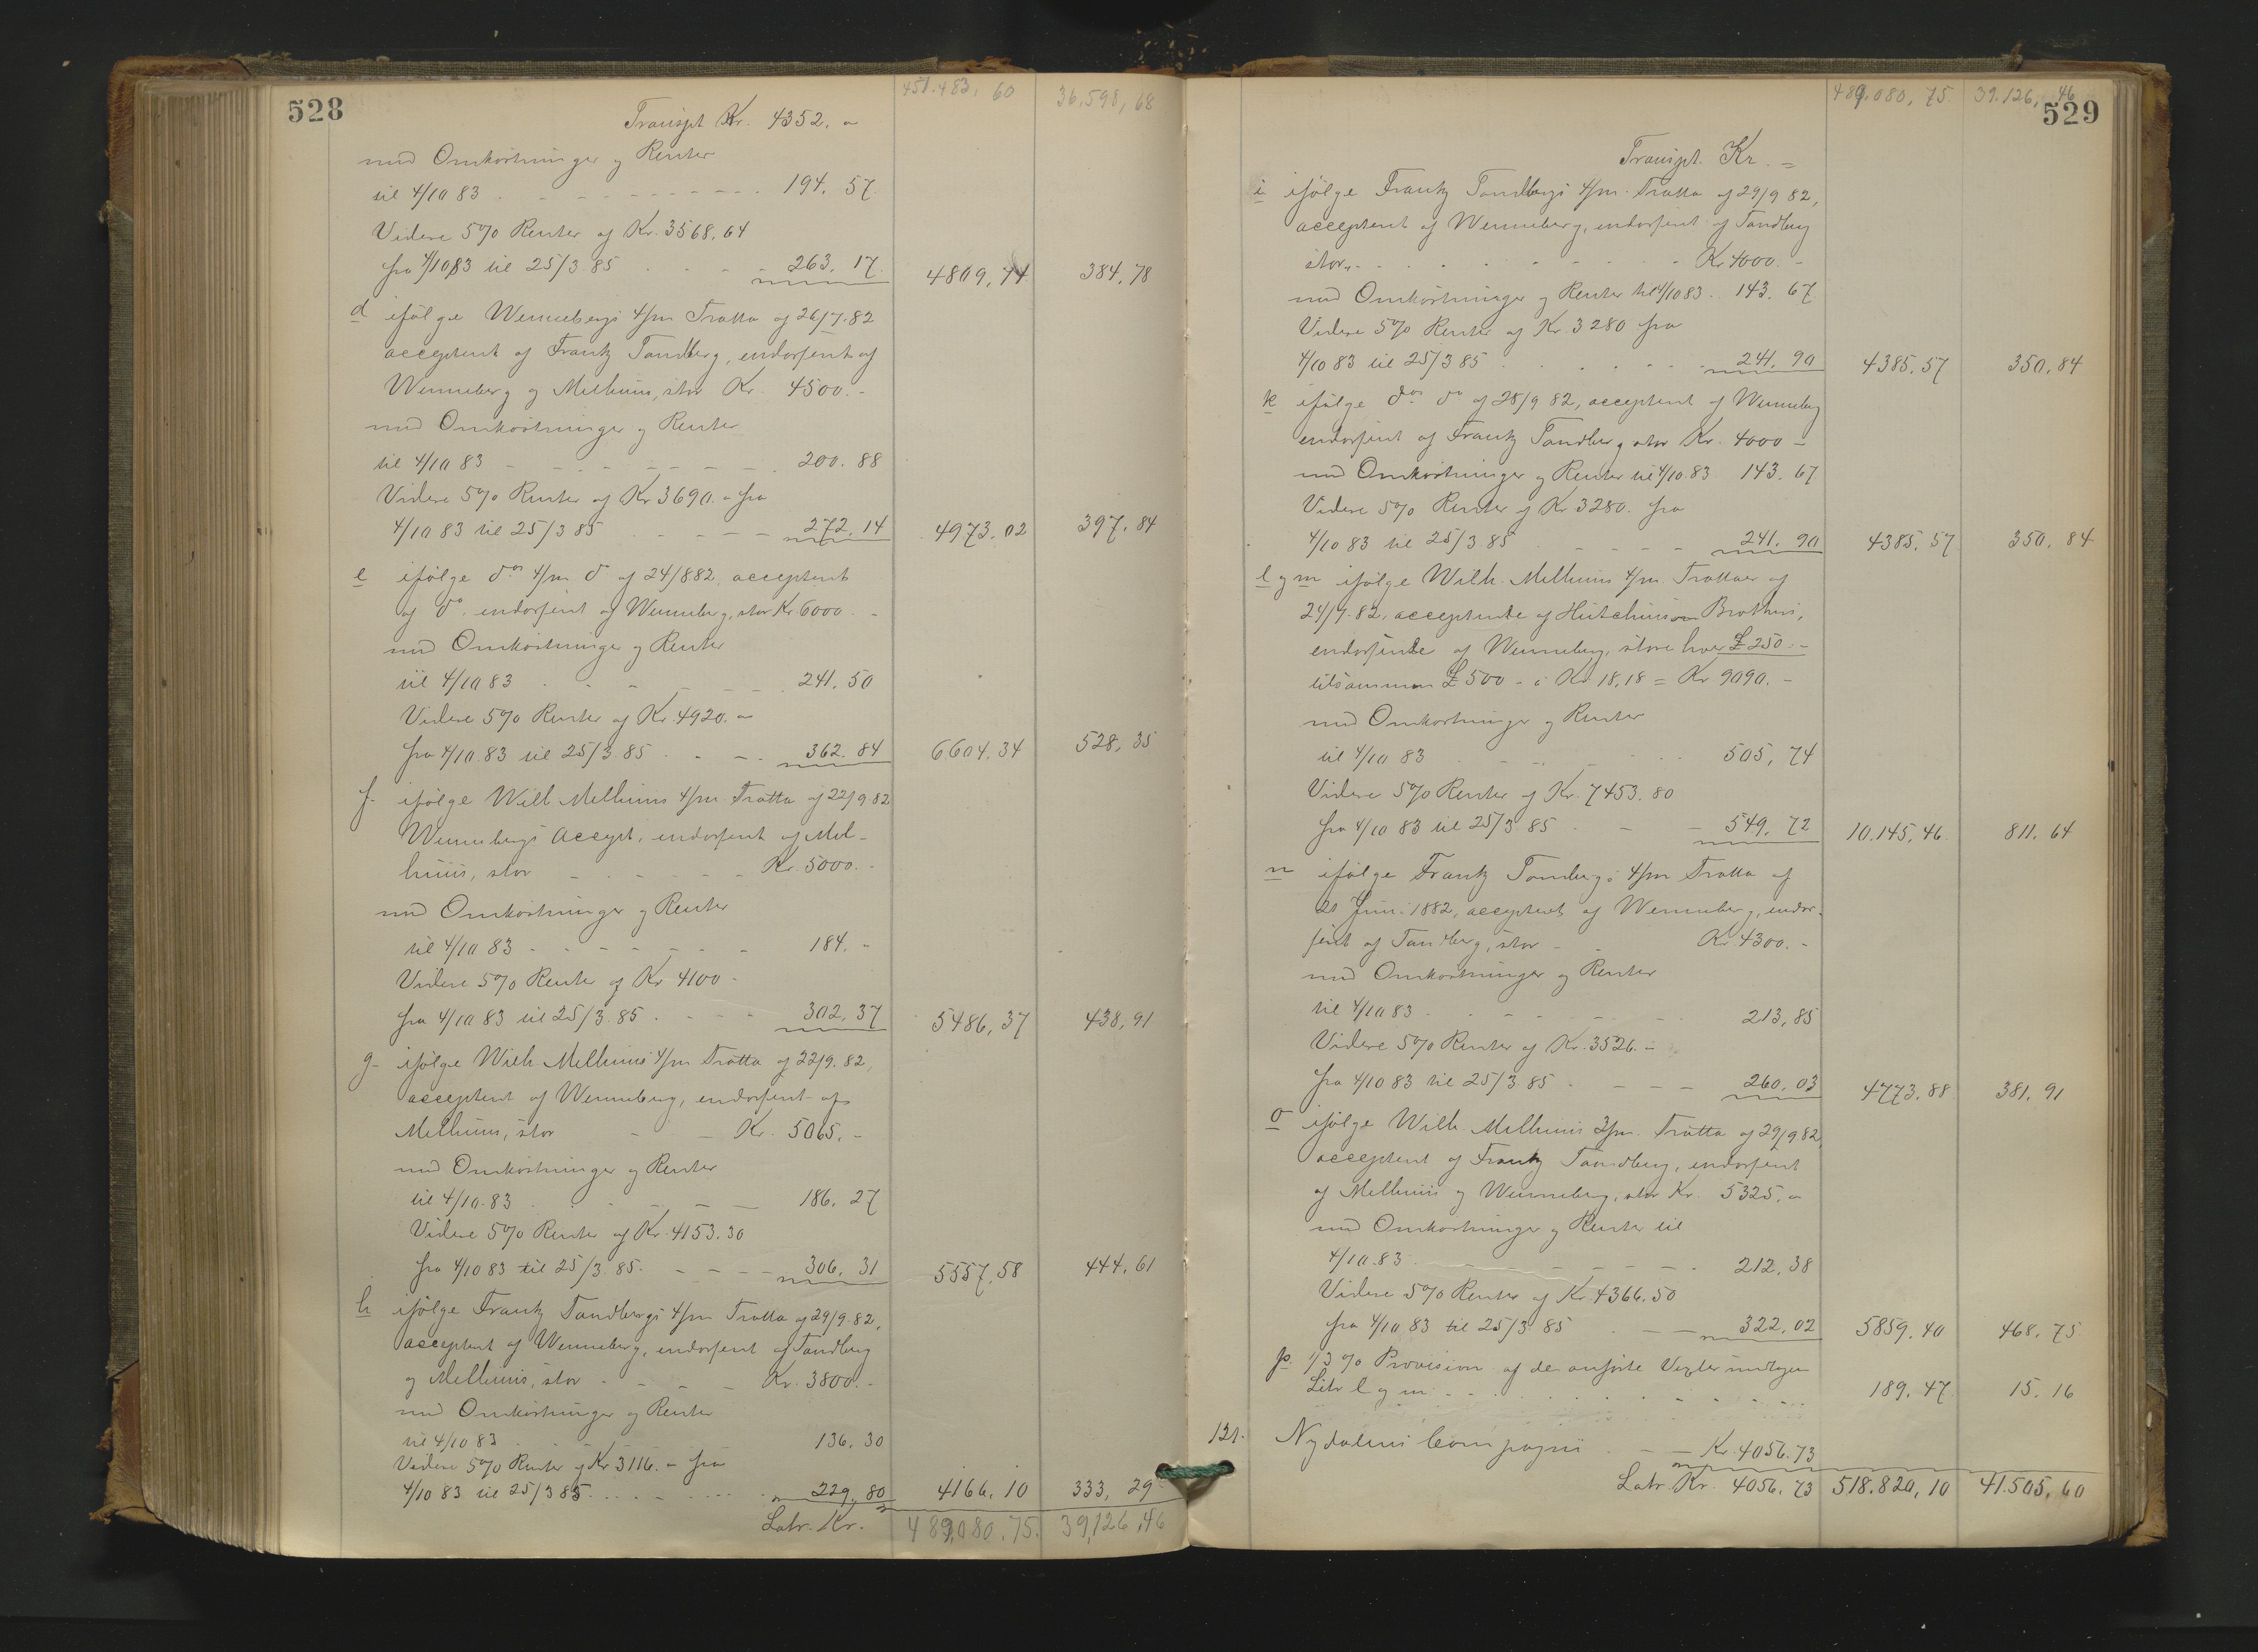 528
451.483, 60 36,598, 68
Transpt Kr. 4352. -
med Omkostninger og Renter
til 4/10 83 194. 57.
Videre 5% Renter af Kr. 3568.64
fra 4/10 83 til 25/3 85 263. 17. 4809.74 384.78
d ifølge Wennebergs 4/m Tratta af 26/7.82
acceptent af Frantz Tandberg, endorsent af
Wenneberg og Melhuus, stor Kr. 4500. -
med Omkostninger og Renter
til 4/10 83 200. 88
Videre 5% Renter af Kr 3690. - fra
4/10 83 til 25/3 85 272.14 4973.02 397.84
e ifølge dos 4/m do af 24/8 82, acceptent
af do, endorsent af Wenneberg, stor Kr 6000. -
med Omkostninger og Renter
til 4/10 83 241. 50
Videre 5% Renter af Kr. 4920. -
fra 4/10.83 til 25/3 85 362.84 6604.34 528,35
f- ifølge Wilh Melhuus 4/m Tratta af 22/9.82
Wennebergs Accept, endorsent af Mel-
huus, stor Kr. 5000. -
med Omkostninger og Renter
til 4/10 83 184. -
Videre 5% Renter af Kr 4100 -
fra 4/10 83 til 25/3.85 302.37 5486,37 438,91
g- ifølge Wilh Melhuus 4/m Tratta af 22/9.82,
acceptent af Wenneberg, endorsent af
Melhuus, stor Kr. 5065. -
med Omkostninger og Renter
til 4/10.83 186. 27
Videre 5% Renter af Kr. 4153.30
fra 4/10 83 til 25/3 85. 306. 31 5557,58 444,61
h ifølge Frantz Tandbergs 4/m Tratta af 29/9.82,
acceptent af Wenneberg, endorsent af Tandberg
og Melhuus, stor Kr. 3800. -
med Omkostninger og Renter
til 4/10 83 136. 30
Videre 5% Renter af Kr 3116. - fra
4/10 83 til 25/3 85 229.80 4166.10 333, 29
Latr. Kr. 489,080.75. 39,126,46
529
489.080, 75. 39.126, 46
Transpt. Kr. =
i ifølge Frantz Tandbergs 4/m Tratta af 29/9 82,
acceptent af Wenneberg, endorsent af Tandberg
stor, Kr 4000. -
med Omkostninger og Renter til 4/10 83. 143. 67
Videre 5% Renter af Kr 3280 fra
4/10 83 til 25/3 85 241. 90 4385.57 350,84
k ifølge dos do af 28/9 82, acceptent af Wenneberg
endorsent af Frantz Tandberg stor Kr. 4000 -
med Omkostninger og Renter til 4/10.83 143. 67
Videre 5% Renter af Kr 3280. fra
4/10 83 til 25/3.85 241. 90 4385.57 350. 84
l og m ifølge Wilh. Melhuus 4/m. Trattaer af
24/7.82, acceptente af Hutchinson Brothers,
endorsente af Wenneberg, store hver £ 250. -
tilsammen £ 500 - à Kr 18,18 = Kr 9090. -
med Omkostninger og Renter
til 4/10 83 505, 74
Videre 5% Renter af Kr. 7453.80
fra 4/10 83 til 25/3 85 549. 72 10.145,46. 811. 64
n ifølge Frantz Tandbergs 4/m Tratta af
21 Juni 1882, acceptent af Wenneberg, endor-
sent af Tandberg, stor - Kr 4300. -
med Omkostninger og Renter
til 4/10 83 213,85
Videre 5% Renter af Kr. 3526. -
fra 4/10 83 til 25/3 85 260.03 4773.88 381.91
o ifølge Wilh. Melhuus 3/m. Tratta af 29/9 82,
acceptent af Frantz Tandberg, endorsent
af Melhuus og Wenneberg, stor Kr. 5325. -
med Omkostninger og Renter til
4/10.83 212,38
Videre 5% Renter af Kr. 4366.50
fra 4/10 83 til 25/3 85 322.02 5859.40 468. 75
p. 1/3 % Provision af de anførte Vexler undtagen
Litr l og m 189.47 15.16
121. Nydalens Compagni - Kr. 4056.73
Latr. Kr. 4056.73 518.820,10 41.505,60